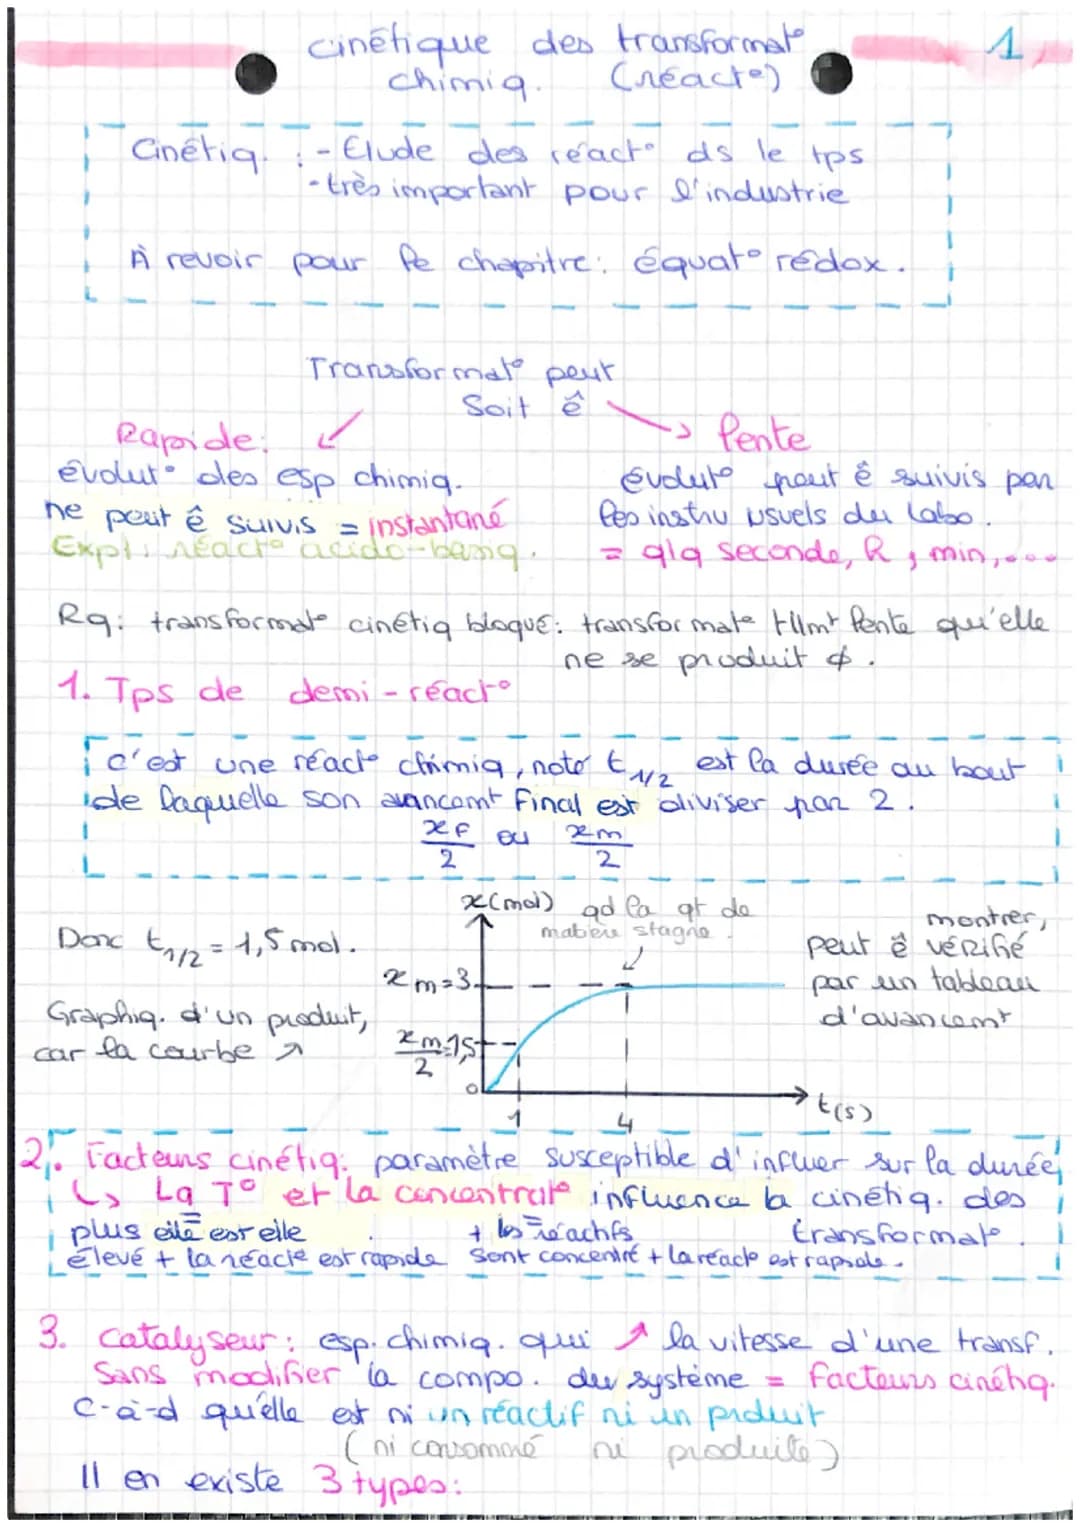 cinétique des transformat°
chimiq. (réact°)
1
Cinétiq. : - Etude des réact° ds le tps
- très important pour l'industrie
À revoir pour le chapitre: équat° rédox.
Transformat° peut
Soit ê
Rapide:
évolut° des esp chimiq.
ne peut ê suivis = instantané
Expl: réact° acido-basiq.
lente
évolut° peut ê suivis par
les instru usuels du labo.
= qlq seconde, h, min,...
Rq: transformat° cinétiq bloqué: transformat° tllmt lente qu'elle
ne se produit φ.
1. Tps de demi-réact°
c'est une réact° chimiq, noté t1/2 est la durée au bout
de laquelle son avancemt final est diviser par 2.
xf/2 ou xm/2
Donc t1/2 = 1,5 mol.
Graphiq. d'un produit,
car la courbe ↗
x(mol)
qd la qt de
matière stagne.
xm=3
xm/2=1,5
0
1
4
t(s)
montrer,
peut ê vérifié
par un tableau
d'avancemt
2. Facteurs cinétiq: paramètre susceptible d'influer sur la durée
↳ La T° et la concentrat° influence la cinétiq. des
transformat°.
plus elle est elle
élevé + la réact° est rapide
+ les réactifs
sont concentré + la réact° est rapide.
3. Catalyseur: esp. chimiq. qui ↗ la vitesse d'une transf.
Sans modifier la compo. du système = facteurs cinétiq.
C-à-d qu'elle est ni un réactif ni un produit
(ni consommé ni produite)
Il en existe 3 types: